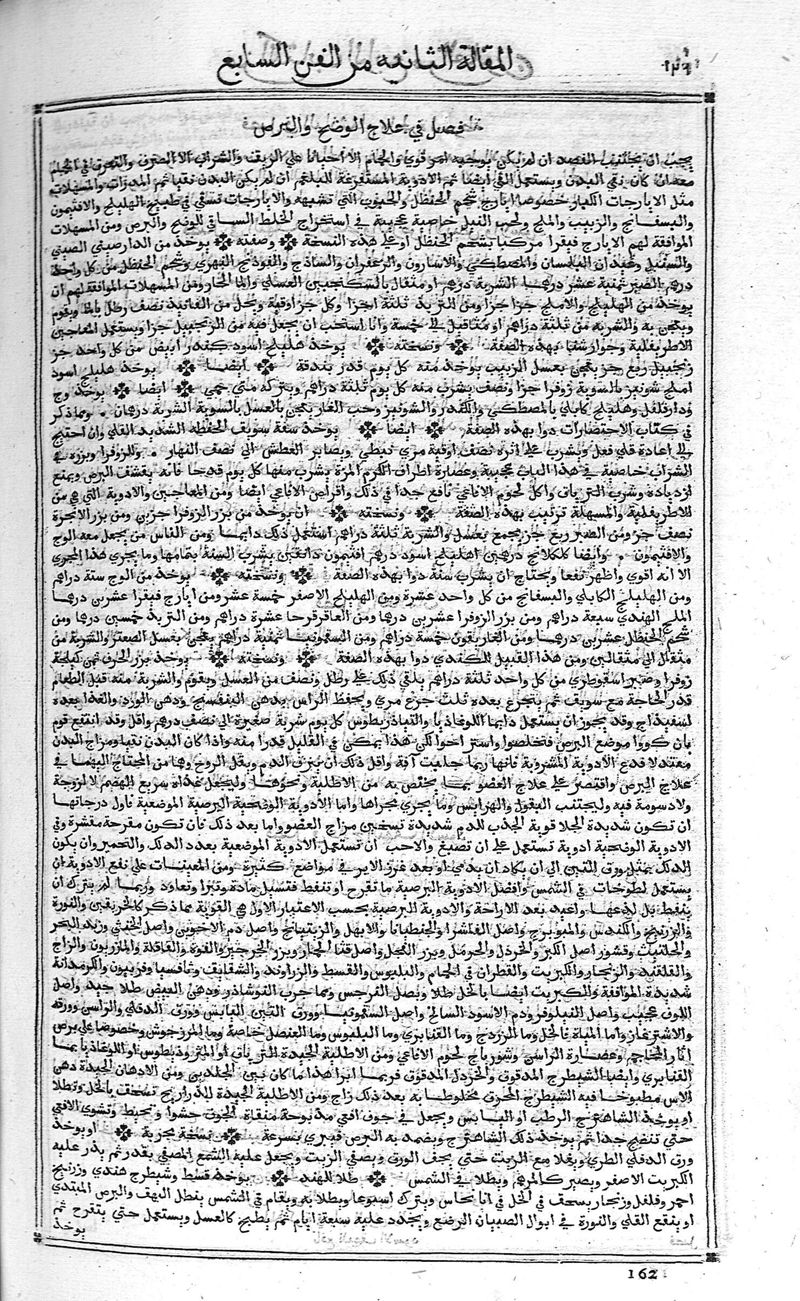 المقالة الثانية من الفن السابع
فصل في علاج الوضح والبرص
يجب ان يجتنب الفصد ان لم يكن يوجبه امر قوي والحمام الا احيانا على الريق والشراب الا الصرف والتعرق في الحمام
معه ان كان نقي البدن ويستعمل القي ايضا ثم الادوية المستفرغة للبلغم ان لم يكن البدن نقيا ثم المدرات والمسهلات
مثل الايارجات الكبار خصوصا ايارج شحم الحنظل والحبوب التي تشبهه والايارجات تسقي في طبيخ الهليلج والافتيمون
والبسفايج والزبيب والملح ولحب النيل خاصية عجيبة في استخراج الخلط الساقي للوضح والبرص ومن المسهلات
الموافقة لهم الايارج فيقرا مركبا بشحم الحنظل او على هذه النسخة وصفته يوخذ من الدارصيني الصيني
والسنبل وعيدان البلسان والمصطكي والاسارون والزعفران والساذج والفودنج النهري وشحم الحنظل من كل واحد
درهم الصبر ثمنية عشر درهما الشربة درهم او مثقال بالسكنجبين العسلي وبالما الحار ومن المسهلات الموافقة لهم ان
يوخذ من الهليلج والاملج جزا جزا ومن التربد ثلثة اجزا وكل جزا وقية ويحل من الفانيد نصف رطل بالما ويقوم
ويعجن به والشربة من ثلثة دراهم او مثاقيل الى خمسة وانا استحب ان يجعل فيه من الزنجبيل جزا ويستعمل المعاجين
الاطريفلية وجوارشنا بهذه الصفة ونسخته يوخذ هليلج اسود كندر ابيض من كل واحد جز
زنجبيل ربع جز يعجن بعسل الزبيب يوخذ منه كل يوم قدر بندقة ايضا يوخذ هليلج اسود
املج شونيز بالسوية زوفرا جزا ونصف يشرب منه كل يوم ثلثة دراهم ويتركه متي حمي ايضا يوخذ وج
ودارفلفل وهليلج كابلي بالمصطكي والكندر والشونيز وحب الغار يعجن بالعسل بالسوية الشربة درهمان ومما ذكر
في كتاب الاختصارات دوا بهذه الصفة ايضا يوخذ سفة سويق الحنطة الشديد القلي وان احتيج
الى اعادة قلي فعل ويشرب على اثره نصف اوقية مري نبطي ويصابر العطش الى نصف النهار والزوفرا وبزره في
الشراب خاصية في هذا الباب عجيبة وعصارة اطراف الكرم المرة يشرب منها كل يوم قدحا فانه يقشف البرص ويمنع
ازدياده وشرب الترياق واكل لحوم الافاعي نافع جدا في ذلك واقراص الافاعي ايضا ومن المعاجين والادوية التي هي من
الاطريفلية والمسهلة ترتيب بهذه الصفة ونسخته ان يوخذ من بزر الزوفرا جزين ومن بزر الانجرة
نصف جز ومن الصبر ربع جز يجمع بعسل والشربة ثلثة دراهم استعمل ذلك دايما ومن الناس من يجعل معه الوج
والافتيمون وايضا كلكلانج درهمين اهليلج اسود درهم افتيمون دانقين يشرب السنة بتمامها وما يجري هذا المجري
الا انه اقوي واظهر نفعا ويحتاج ان يشرب سنة دوا بهذه الصفة ونسخته يوخذ من الوج ستة دراهم
ومن الهليلج الكابلي والبسفايج من كل واحد عشرة ومن الهليلج الاصفر خمسة عشر ومن ايارج فيقرا عشرين درهما
الملح الهندي سبعة دراهم ومن بزر الزوفرا عشرين درهما ومن العاقرقرحا عشرة دراهم ومن التربد خمسين درهما ومن
شحم الحنظل عشرين درهما ومن الغاريقون خمسة دراهم ومن السقمونيا ثمنية دراهم يعجن بعسل الصعتر والشربة من
مثقال الى مثقالين ومن هذا القبيل للكندي دوا بهذه الصفة ونسخته يوخذ بزر الحرف ثمن كيلجة
زوفرا وصبر اسقوطري من كل واحد ثلثة دراهم يلقي ذلك على رطل ونصف من العسل ويقوم والشربة منه قبل الطعام
قدر الحاجة مع سويق ثم يتجرع بعده ثلث جرع مري ويحفظ الراس بدهن البنفسج ودهن الورد والغدا بعده
اسفيذاج وقد يجوز ان يستعمل دايما اللوغاذيا والتياذريطوس كل يوم شربة صغيرة الى نصف درهم واقل وقد انتفع قوم
بان كووا موضع البرص فتخلصوا واستراحوا لكن هذا يمكن في القليل قدرا منه واذا كان البدن نقيا ومزاج البدن
معتدلا فدع الادوية المشروبة فانها ربما جلبت آفة واقل ذلك ان ينزف الدم ويقل الروح وهما من المحتاج اليهما في
علاج البرص واقتصر على علاج العضو بما يختص به من الاطلية ونحوها وليجعل غذاه سريع الهضم لا لزوجة
ولا دسومة فيه وليجتنب البقول والهرايس وما يجري مجراها واما الادوية الوضحية البرصية الموضعية فاول درجاتها
ان تكون شديدة الجلا قوية الجذب للدم شديدة تسخين مزاج العضو واما بعد ذلك فان تكون مقرحة مقشرة وفي
الادوية الوضحية ادوية تستعمل على ان تصبغ والاحب ان تستعمل الادوية الموضعية بعد الدلك والتحمير وان يكون
الدلك بمثل ورق التين الى ان يكاد ان يدمي او بعد غرز الابر في مواضع كثيرة ومن المعينات على نفع الادوية ان
يستعمل لطوخات في الشمس وافضل الادوية البرصية ما تقرح او تنفط فتسيل مادة وتبرا وتعاود وربما لم يترك ان
ينفط بل لذعها واعيد بعد الاراحة والادوية البرصية بحسب الاعتبار الاول هي القوية مما ذكر كالخربقين والنورة
والزرنيخ والكندس والميويزج واصل الفاشرا والجنطيانا والابهل والريتيانج واصل دم الاخوين واصل الخنثي وزبد البحر
والحلتيت وقشور اصل الكبر والخردل والحرمل وبزر الفجل واصل قثا الحمار وبزر الجرجير والفوة والقاقلة والمازريون والزاج
والقلقند والزنجار والكبريت والقطران في الحمام والبلبوس والقسط والزراوند والشقايق وثافسيا وفربيون والكرمدانة
شديدة الموافقة والكبريت ايضا بالخل طلا وبصل النرجس ومما جرب النوشاذر ودهن البيض طلا جيد واصل
اللوف عجيب واصل النيلوفر ودم الاسود السالخ واصل السقمونيا وورق التين اليابس وورق الدفلي والراسن وورقه
والاشترغاز واما المياة فالخل وما المرزنج وما القنابري وما البلبوس وما العنصل خاصة وما المرزجوش وخصوصا على برص
آثار المحاجم وعصارة الراسن وشورباج لحوم الافاعي ومن الاطلية الجيدة الترياق او المثروذيطوس او اللوغاذيا بما
القنابري وايضا الشيطرج المدقوق والخردل المدقوق فربما ابرا هذا ما كان بين الجلدين ومن الادهان الجيدة دهن
الآس مطبوخا فيه الشيطرج المحرق مخلوطا به بعد ذلك زاج ومن الاطلية الجيدة للذراريح تسحق بالخل وتطلا
او يوخذ الشاهترج الرطب او اليابس ويجعل في جوف افعي مذبوحة منقاة الجوف حشوا وتخيط وتشوي الافعي
حتى تنضج جدا ثم يوخذ ذلك الشاهترج ويضمد به البرص فيبري بسرعة نسخة مجربة او يوخذ
ورق الدفلي الطري ويغلا مع الزيت حتى يجف الورق ويصفي الزيت ويجعل عليه الشمع المصفي بقدر ثم يذر عليه
الكبريت الاصفر ويصير كالمرهم ويطلا في الشمس طلا للهند يوخذ قسط وشيطرج هندي وزرنيخ
احمر وفلفل وزنجار يسحق في الخل في انا نحاس ويترك اسبوعا ويطلا به ويقام في الشمس يفعل البهق والبرص المبتدي
او ينقع القلي والنورة في ابوال الصبيان الرضع ويجدد عليه سبعة ايام ثم يطبخ كالعسل ويستعمل حتى يتقرح ثم
يوخذ
162